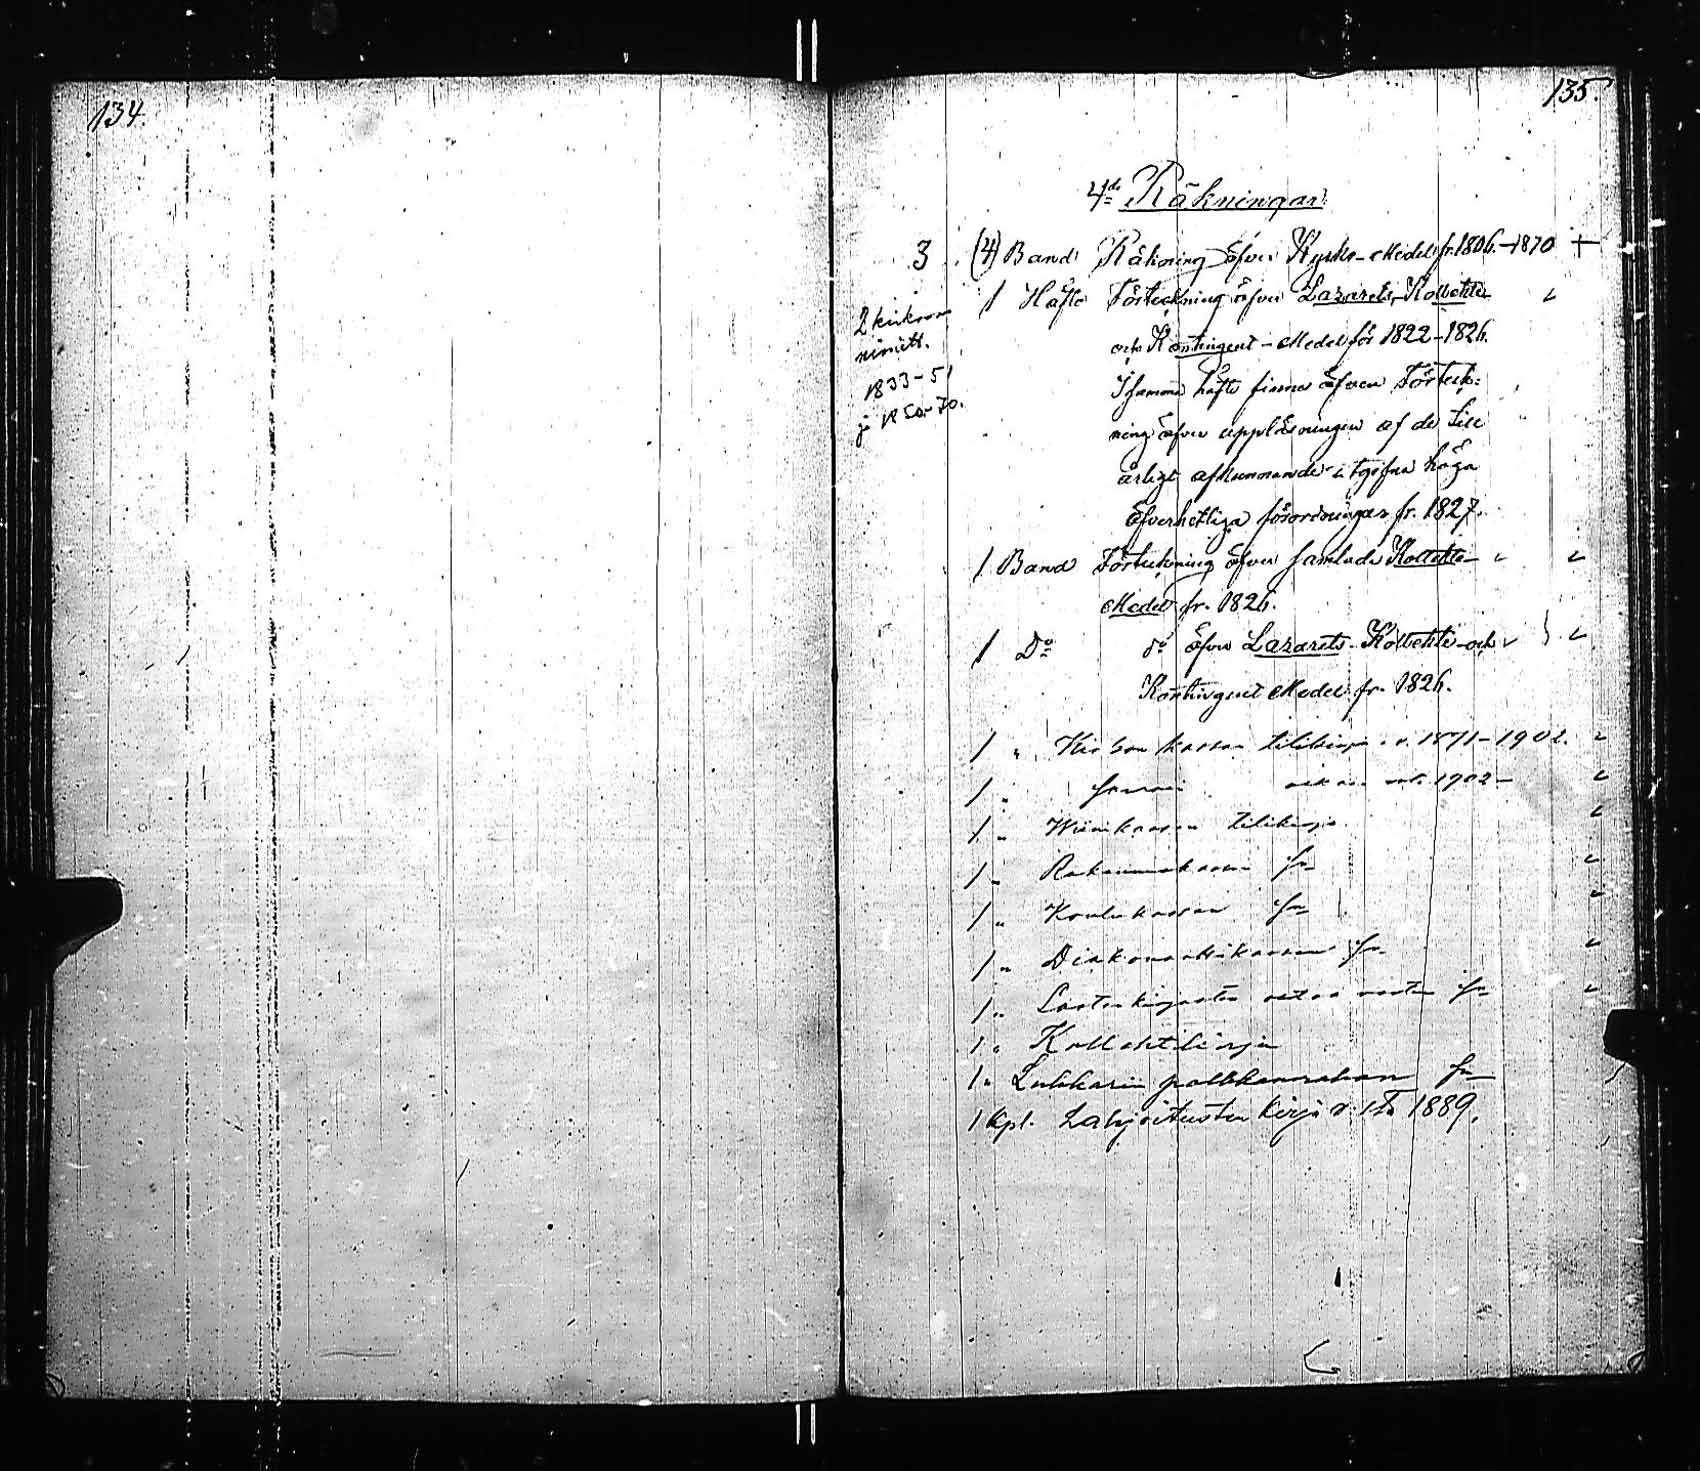 134.
135.
4de Räkningar
3 (4) Band Räkning öfver Kyrko-Medel fr. 1806.-1870 +
1 Häfte Förteckning öfver Lazaretts-Kollekte
och Kontingent-Medel för 1822-1826.
I samma häfte finnes äfven Förteck-
ning öfver uppläsningen af de till
årligt afkunnande utgifna höga
öfverhetliga förordningar fr. 1827.
2 kirkon
nimitt.
1833-51
ja 1850-70.
1 Band Förteckning öfver samlade Kollekte-
Medel fr. 1826.
1 Do do öfver Lazaretts-Kollekte-och
Kontingent Medel fr. 1826.
1 " Kirkon kassan tilikirja v. 1871-1902.
1 " Samoin 1902-
1 " Waivaiskassan tilikirja
1 " Rakennuskassan Sn
1 " Koulukassan Sn
1 " Diakonaattikassan Sn
1 " Lastenkirjaston Sn
1 " Kollehtikirja
1 " Lukkarin palkkauskassan Sn
1 kpl. Lahjoitusten kirja v:sta 1889.